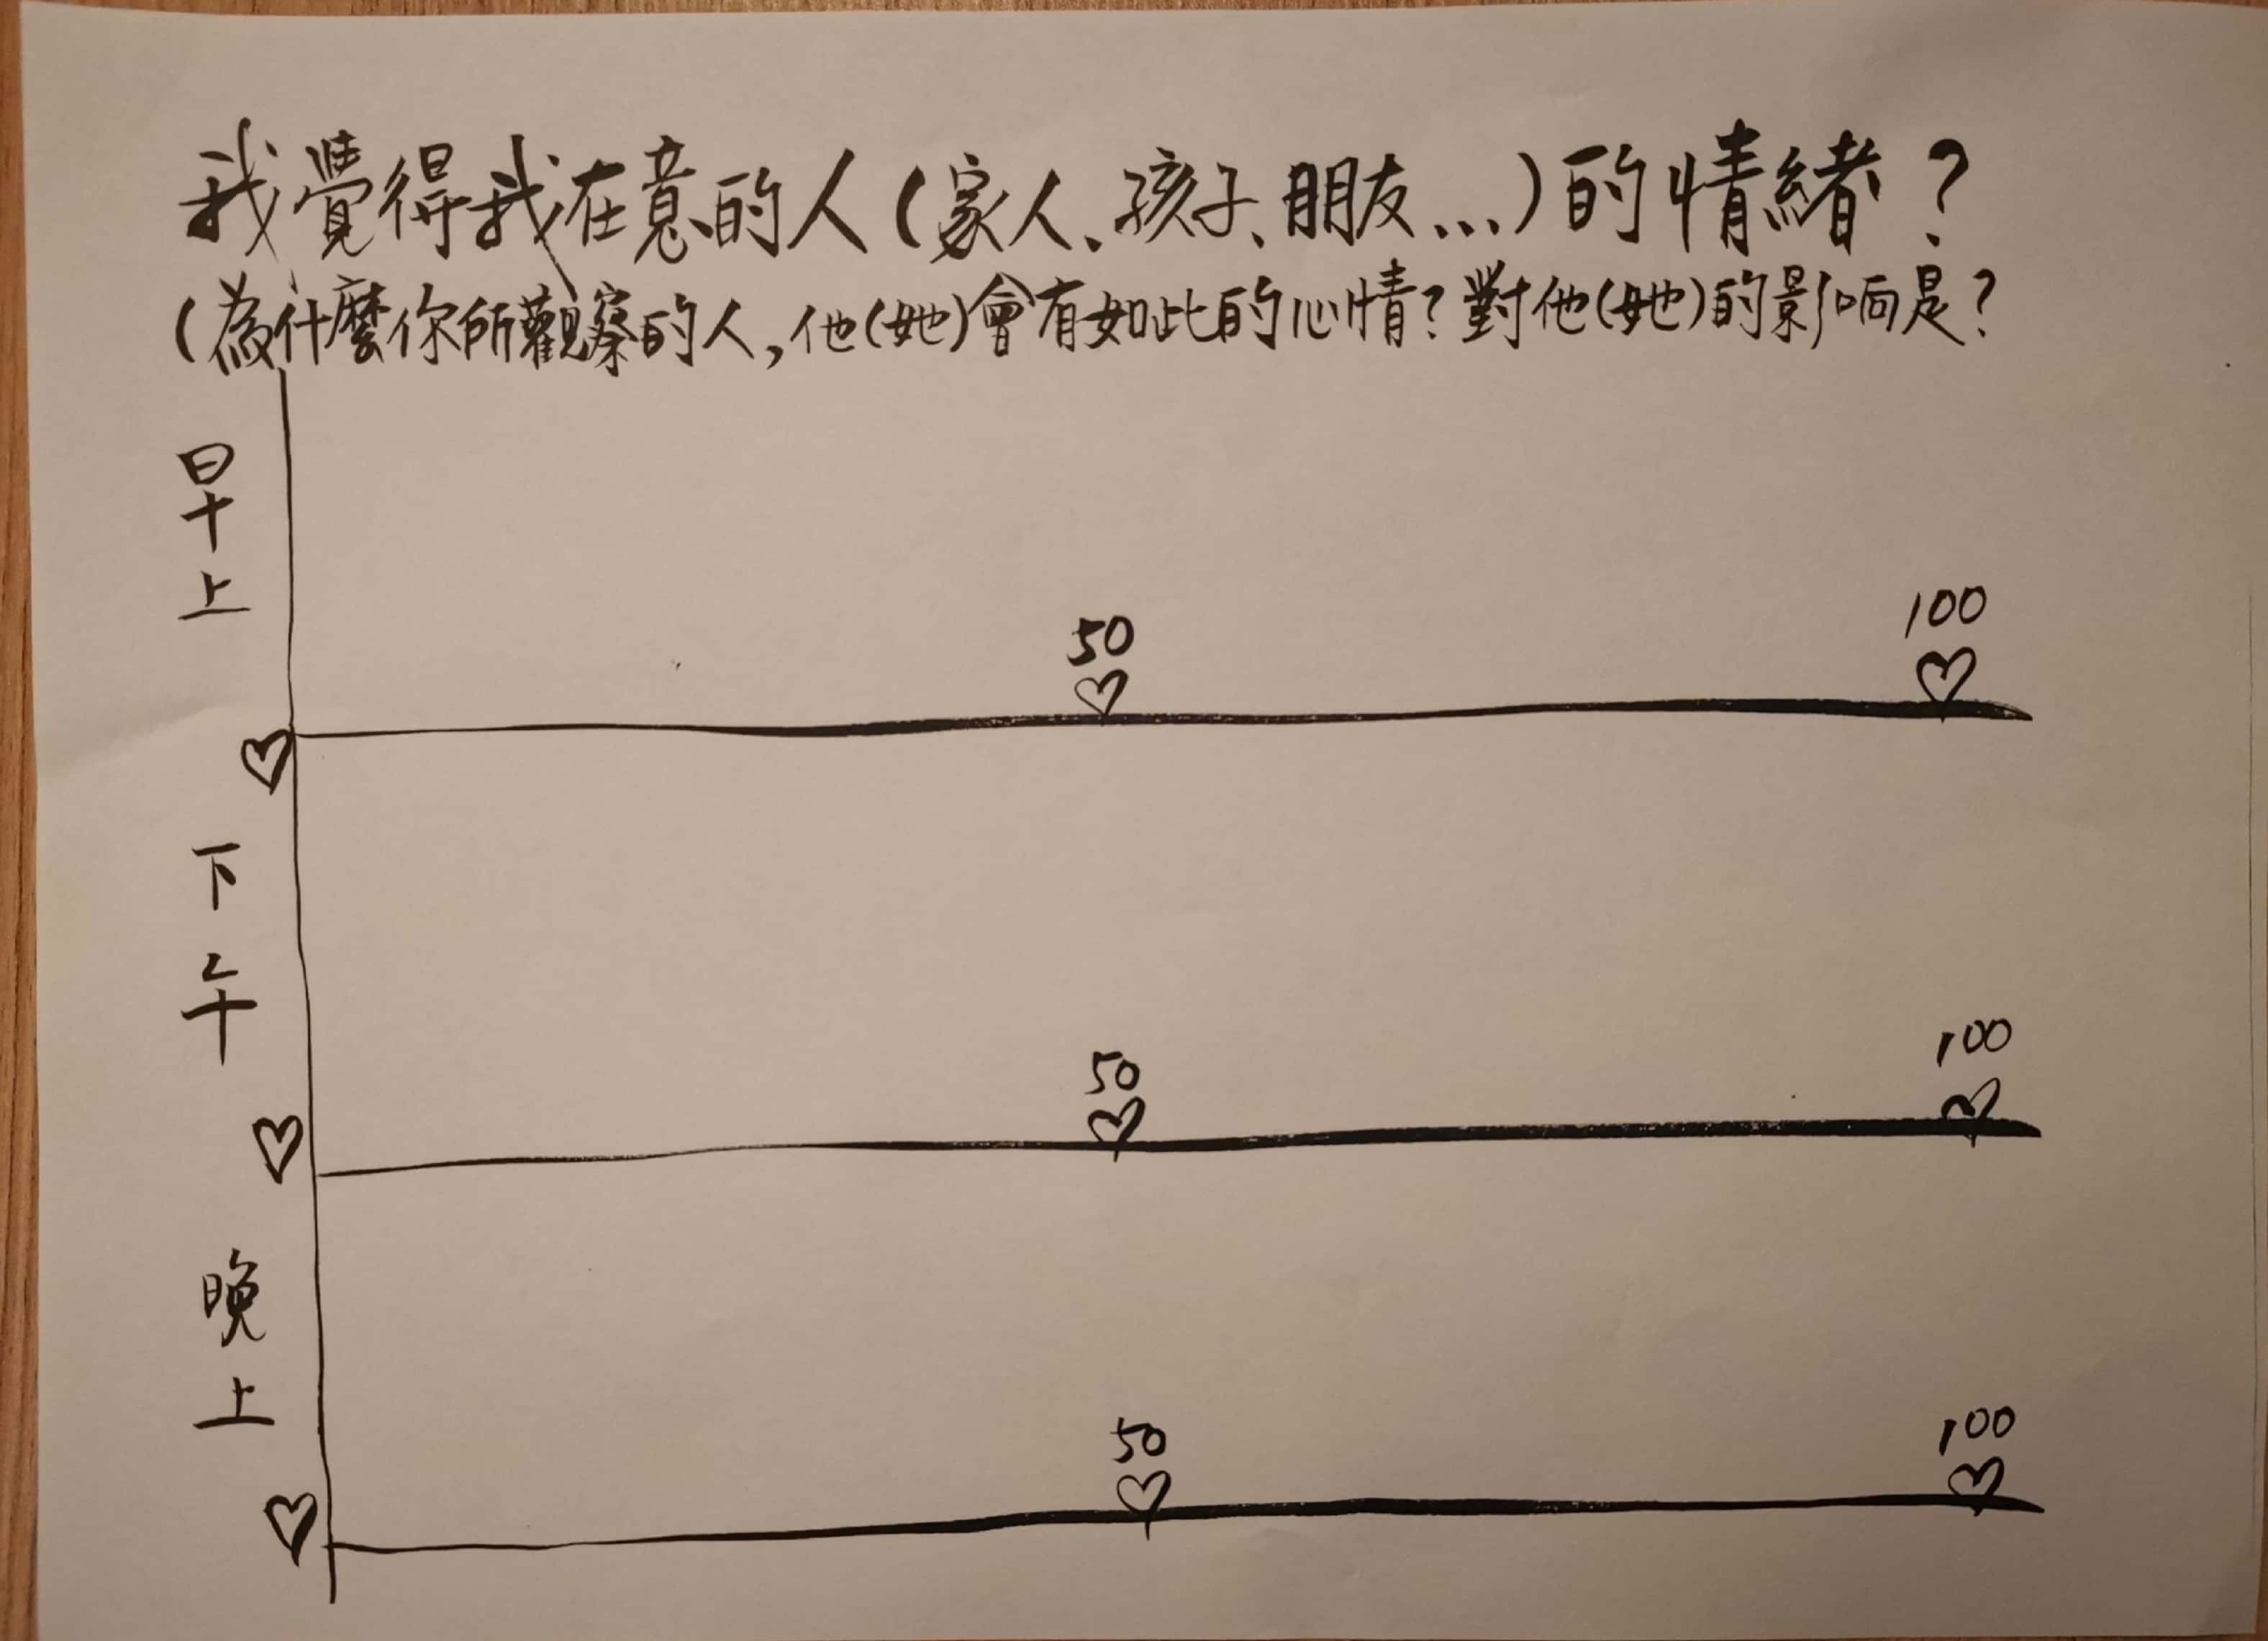 我覺得我在意的人(家人、孩子、朋友...)的情緒?
(為什麼你所觀察的人,他(她)會有如此的心情?對他(她)的影响是?
早上
50
100
下午
50
100
晚上
50
100